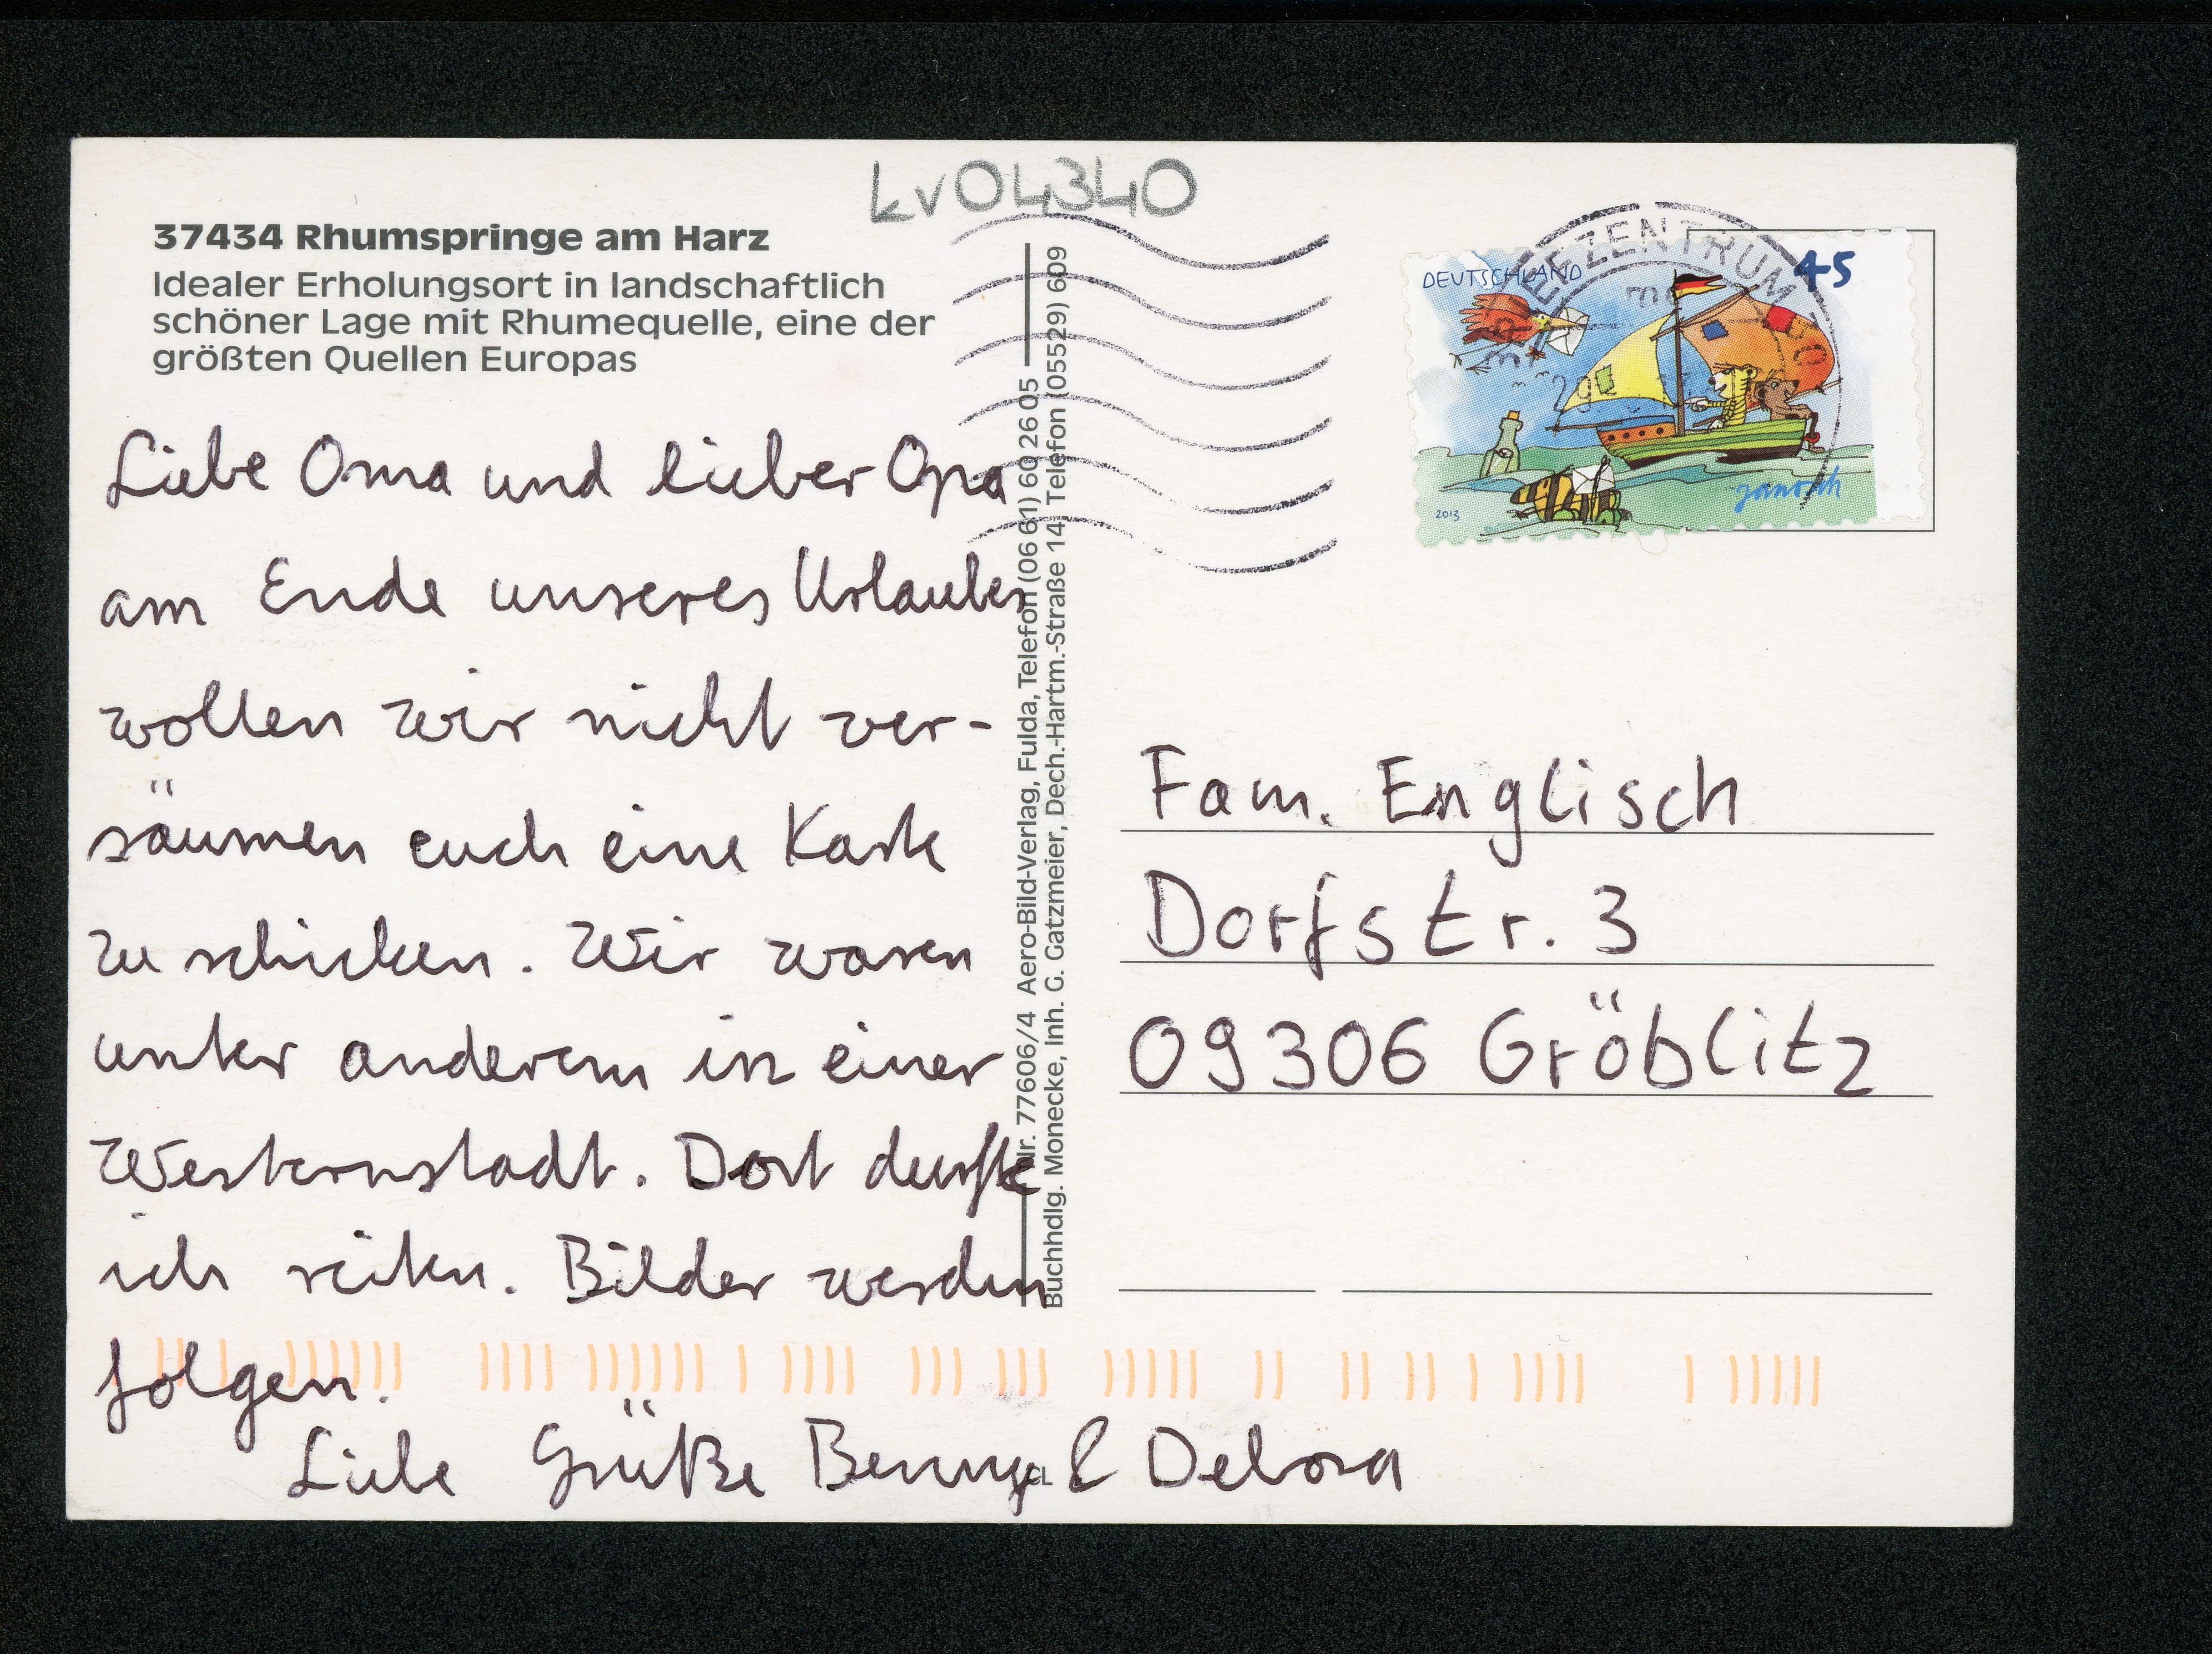 kv04340
37434 Rhumspringe am Harz
Idealer Erholungsort in landschaftlich
schöner Lage mit Rhumequelle, eine der
größten Quellen Europas
Liebe Oma und lieber Opa
am Ende unseres Urlaubes
wollen wir nicht ver-
säumen euch eine Karte
zu schicken. Wir waren
unter anderem in einer
Westernstadt. Dort durfte
ich reiten. Bilder werden
folgen.
Liebe Grüße Benny & Debora
CL
Nr. 77606/4 Aero-Bild-Verlag, Fulda, Telefon (06 61) 60 26 05
Buchhdlg. Monecke, Inh. G. Gatzmeier, Dech.-Hartm.-Straße 14, Telefon (05529) 609
BRIEFZENTRUM
DEUTSCHLAND
45
janosch
2013
Fam. Englisch
Dorfstr. 3
09306 Gröblitz